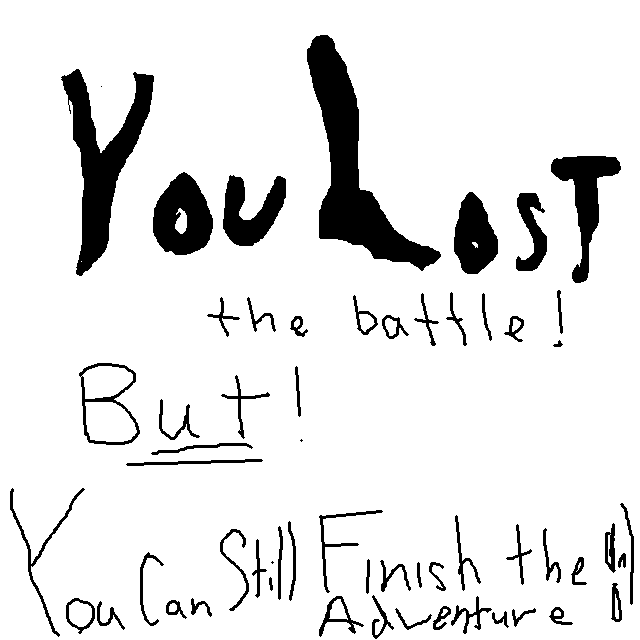 You Lost
the battle!
But!
You Can Still Finish the
Adventure